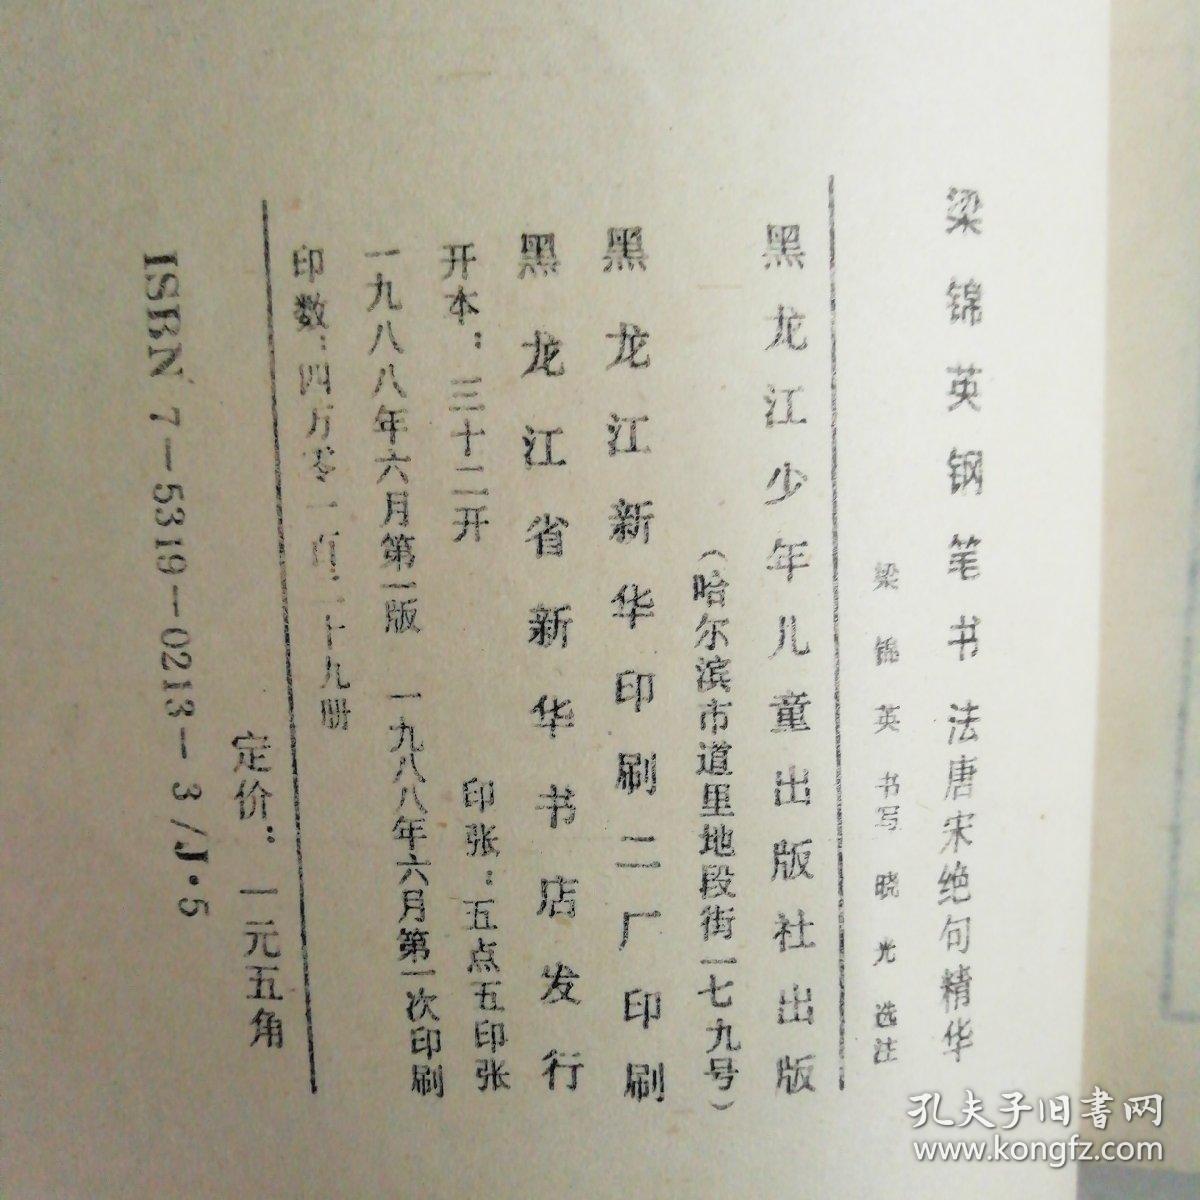 梁锦英钢笔书法唐宋绝句精华
梁锦英 书写 晓光 选注
黑龙江少年儿童出版社出版
（哈尔滨市道里地段街一七九号）
黑龙江新华印刷二厂印刷
黑龙江省新华书店发行
开本：三十二开 印张：五点五印张
一九八八年六月第一版 一九八八年六月第一次印刷
印数：四万零一百二十九册
定价：一元五角
ISBN 7—5319—0213—3/J·5
孔夫子旧書网
www.kongfz.com